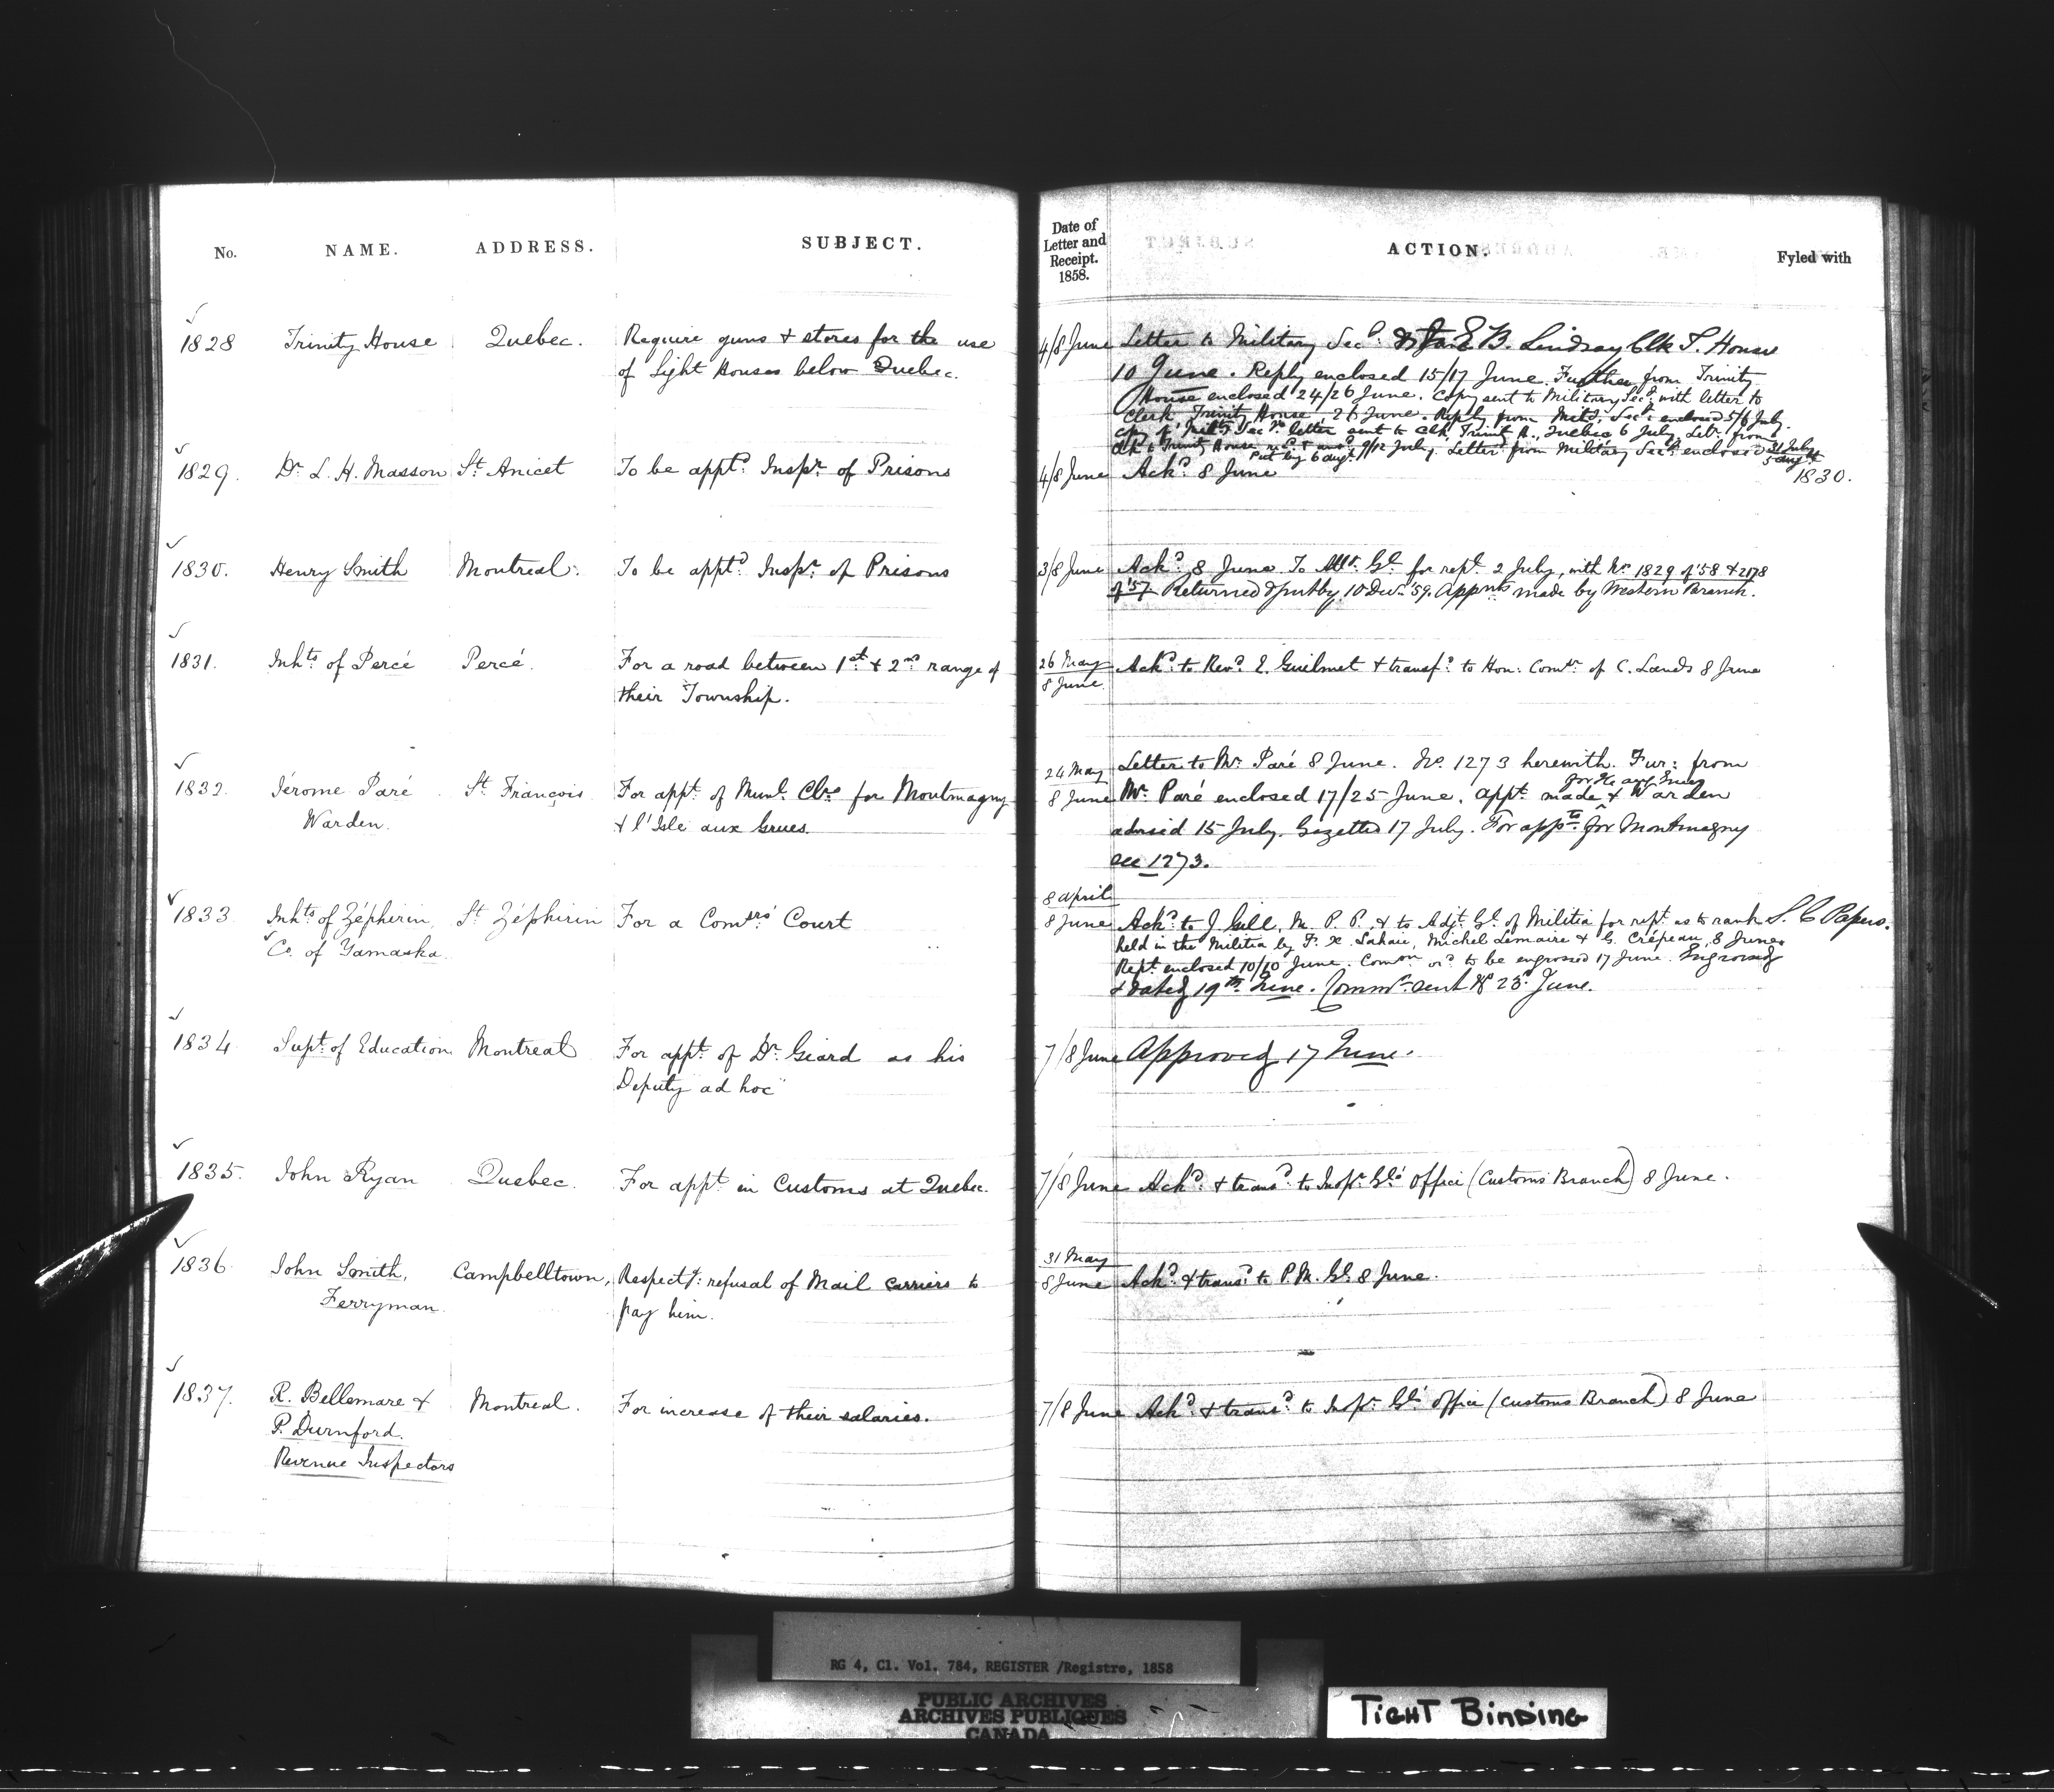 No. NAME. ADDRESS. SUBJECT.
1828 Trinity House Quebec. Require guns & stores for the use
of Light Houses below Quebec.
1829. Dr. L. H. Masson St. Anicet To be apptd. Inspr. of Prisons
1830. Henry Smith Montreal. To be apptd. Inspr. of Prisons
1831. Inhts. of Percé Percé. For a road between 1st. & 2nd. range of
their Township.
1832. Jérome Paré St. François For appt. of Munl. Clrs. for Montmagny
Warden. & l'Isle aux Grues.
1833. Inhts of Zéphirin, St. Zéphirin For a Comrs' Court
Co. of Yamaska.
1834 Supt. of Education Montreal For appt. of Dr. Giard as his
Deputy ad hoc
1835. John Ryan Quebec. For appt. in Customs at Quebec.
1836 John Smith, Campbelltown, Respectg. refusal of Mail carriers to
Ferryman. pay him.
1837. R. Bellemare & Montreal. For increase of their salaries.
P. Durnford.
Revenue Inspectors
Date of
Letter and
Receipt.
1858.
ACTION.
Fyled with
4/8 June Letter to Military Secy. E. B. Lindsay Clk T. House
10 June. Reply enclosed 15/17 June. Further from Trinity
House enclosed 24/26 June. Copy sent to Military Secy. with letter to
Clerk Trinity House 26 June. Reply from Mily. Secy. enclosed 5/6 July.
copy of Mily Secy's letter sent to Clk. Trinity H., Quebec 6 July. Letr. from
Clk Trinity House 9/12 July. Letter from Military Secy. enclosed 31 July
Put by 6 augt. 5 augt
4/8 June Ackd. 8 June 1830.
3/8 June Ackd. 8 June To Atty. Gl. for rept. 2 July, with No. 1829 of '58 & 2178
of '57. Returned & put by 10 Decr. '59. Appnts made by Western Branch.
26 May
8 June. Ackd. to Revd. E. Guilmet & transfd. to Hon: Comr. of C. Lands 8 June
24 May Letter to Mr. Paré 8 June. No. 1273 herewith. Fur: from
8 June Mr. Paré enclosed 17/25 June. appt. made for Ile aux Grues & Warden
advised 15 July. Gazetted 17 July. For appts. for Montmagny
see 1273.
8 april
8 June Ackd. to J. Gill, M. P. P. & to Adjt. Gl. of Militia for rept. as to rank S. C Papers.
held in the Militia by F. X. Lahaie, Michel Lemaire & G. Crépeau 8 June.
Rept. enclosed 10/10 June. Comon. ord. to be engrossed 17 June. Engrossed
& dated 19th. June. Commn. sent 23d. June.
7/8 June Approved 17 June.
7/8 June Ackd. & transd. to Inspr. Gl's Office (Customs Branch) 8 June.
31 May
8 June Ackd. & transd. to P. M. Gl. 8 June.
7/8 June Ackd. & transd. to Inspr. Gl's Office (Customs Branch) 8 June
RG 4, C1. Vol. 784, REGISTER /Registre, 1858
PUBLIC ARCHIVES
ARCHIVES PUBLIQUES
CANADA
TIGHT BINDING